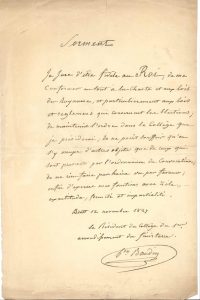 Serment
Je Jure d'être fidèle au Roi, de me
conformer en tout à la Charte et aux lois
du Royaume, et particulièrement aux lois
et règlements qui concernent les Elections,
de maintenir l'ordre dans le Collège que
je présiderai, de ne point souffrir qu'on
s'y occupe d'autres objets que de ceux qui
sont prescrits par l'ordonnance de Convocation,
de ne rien faire par haine ou par faveur,
enfin d'exercer mes fonctions avec zèle,
exactitude, fermeté et impartialité.
Brest 12 novembre 1827
Le Président du Collège du 1er
arrondissement du finistère
Baudin